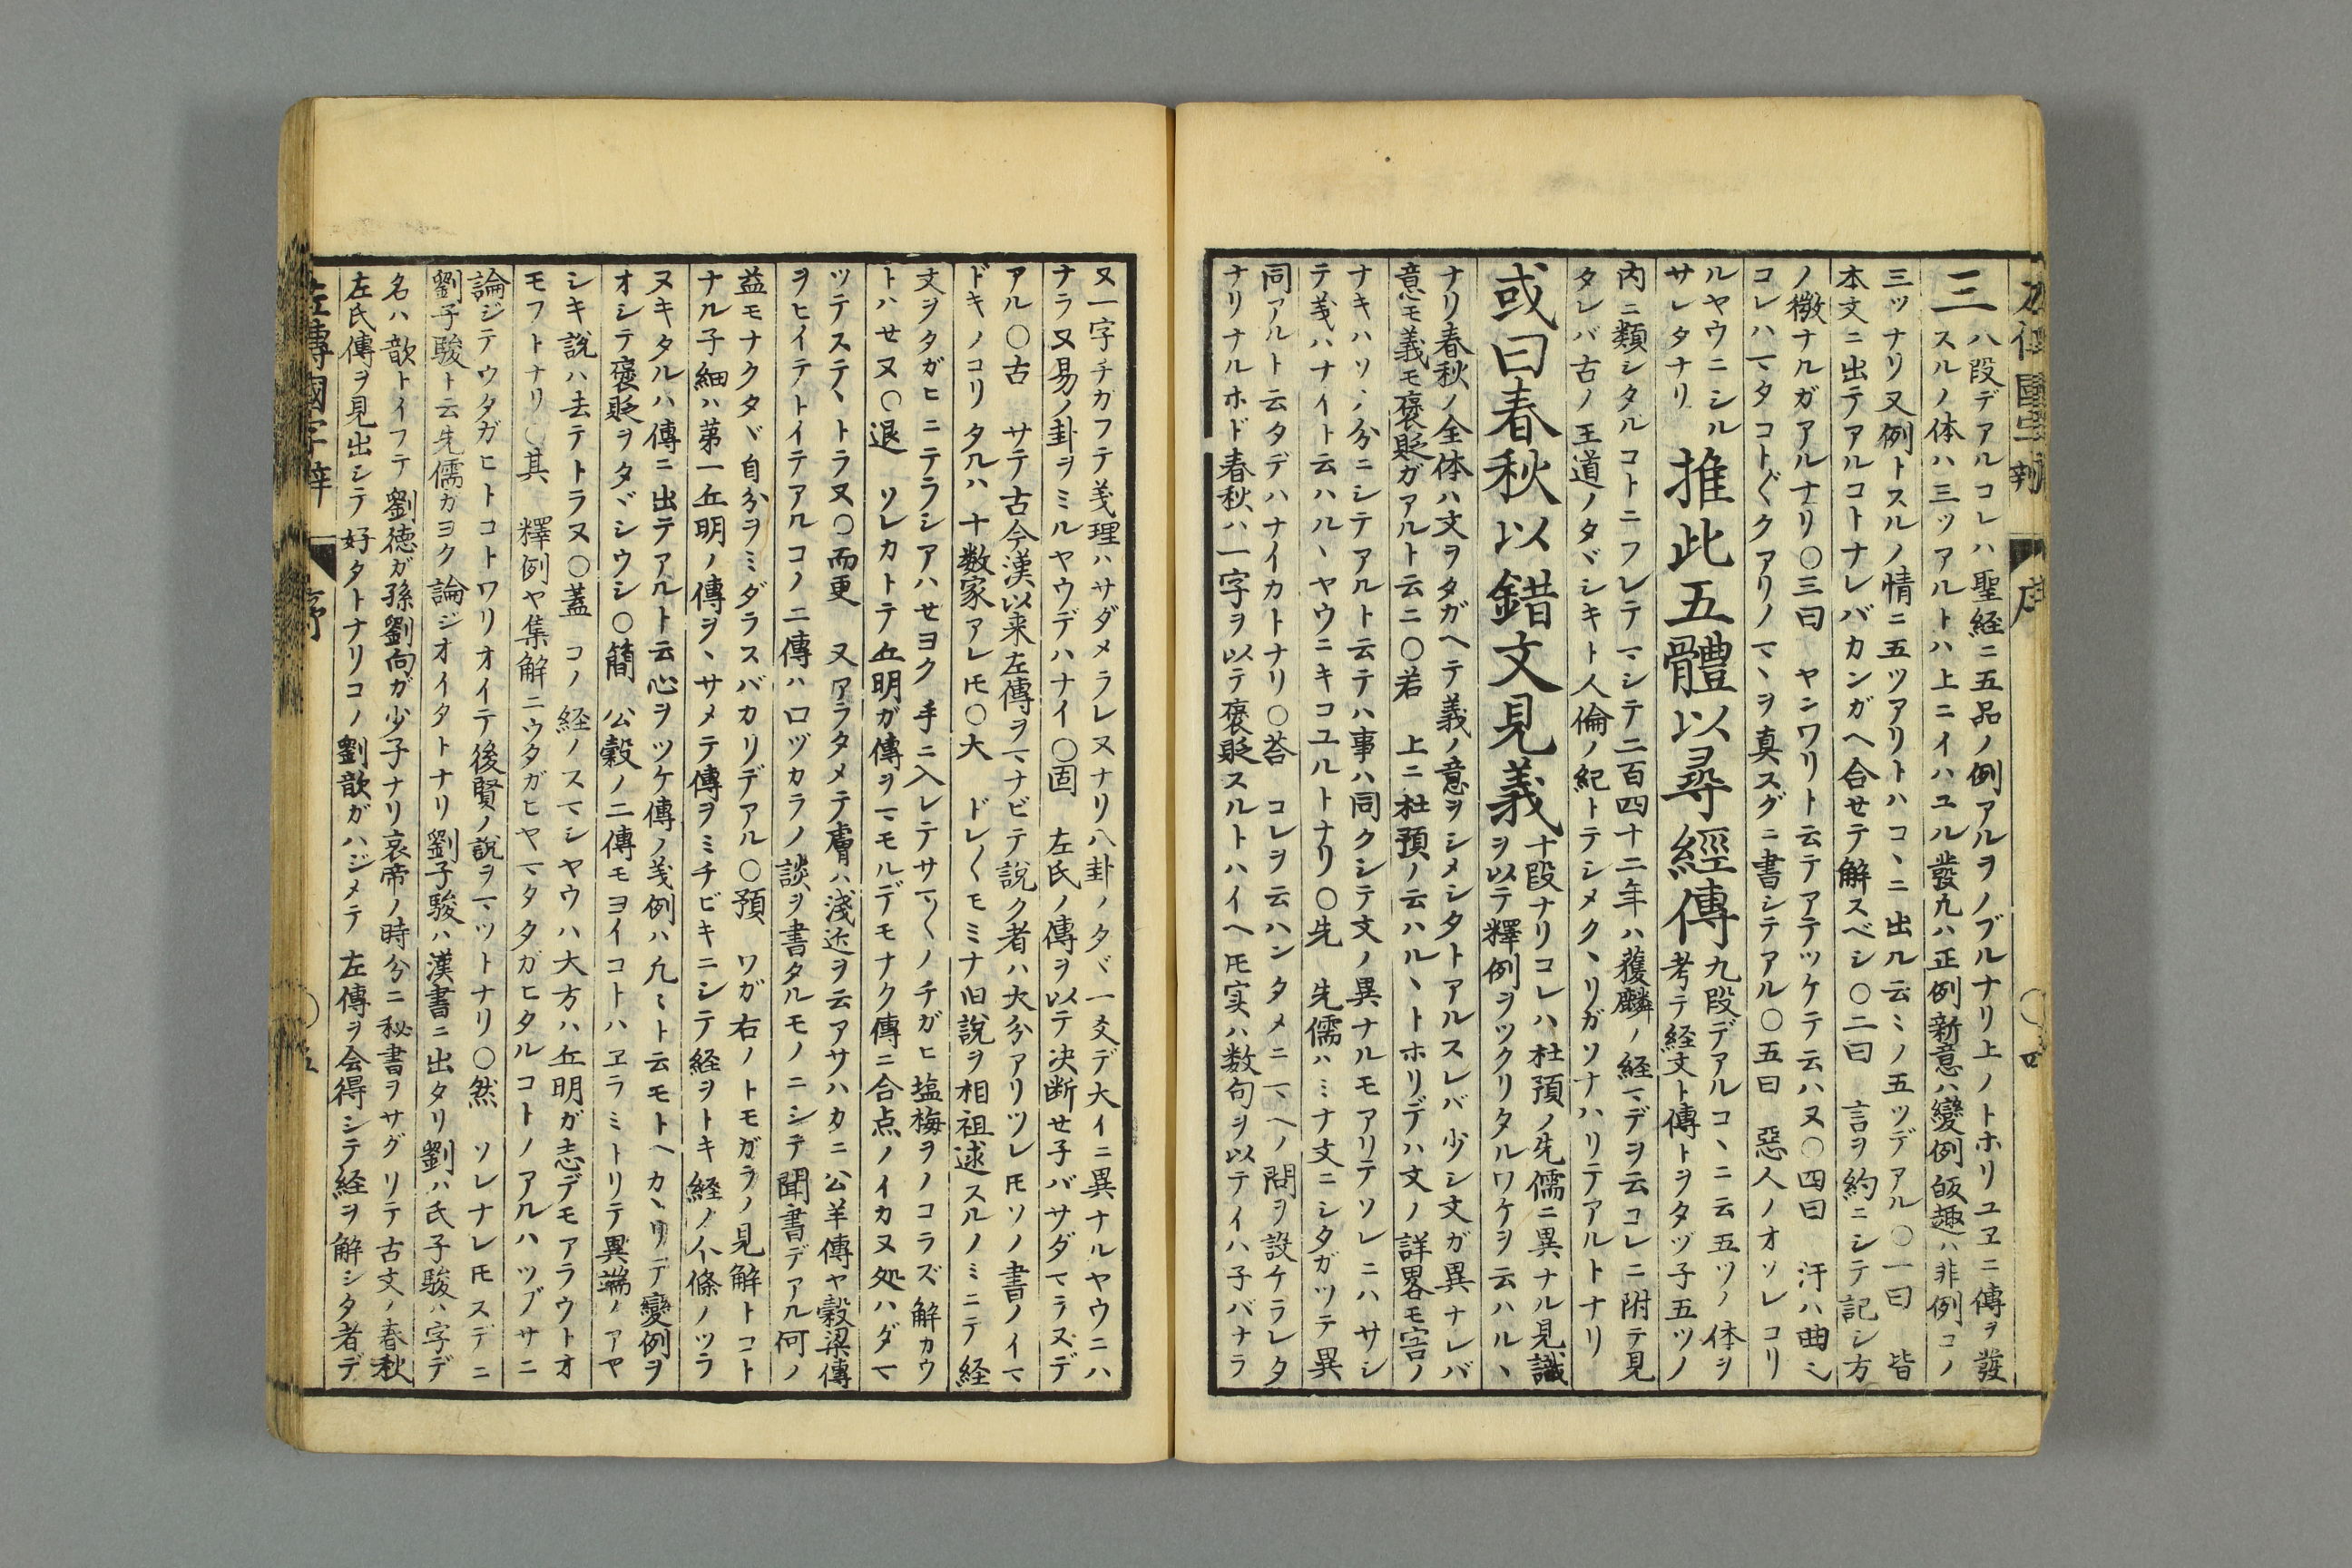 左傳國字辯 序 ○四
三
ハ段デアルコレハ聖経ニ五品ノ例アルヲノブルナリ上ノトホリユヱニ傳ヲ發
スルノ体ハ三ツアルトハ上ニイハユル發凡ハ正例新意ハ變例皈趣ハ非例コノ
三ツナリ又例トスルノ情ニ五ツアリトハコヽニ出ル云ミノ五ツデアル○一曰 皆
本文ニ出テアルコトナレバカンガヘ合せテ解スベシ○二曰 言ヲ約ニシテ記シ方
ノ微ナルガアルナリ○三曰 ヤンワリト云テアテツケテ云ハヌ○四曰 汙ハ曲ヘ
コレハマタコト〲クアリノマヽヲ真スグニ書シテアル○五曰 惡人ノオソレコリ
ルヤウニシル
サレタナリ
推此五體以尋經傳
九段デアルコヽニ云五ツノ体ヲ
考テ経文ト傳トヲタヅ子五ツノ
内ニ類シタルコトニフレテマシテ二百四十二年ハ獲麟ノ経マデヲ云コレニ附テ見
タレバ古ノ王道ノタヾシキト人倫ノ紀トテシメクヽリガソナハリテアルトナリ
或曰春秋以錯文見義
十段ナリコレハ杜預ノ先儒ニ異ナル見識
ヲ以テ釋例ヲツクリタルワケヲ云ハルヽ
ナリ春秋ノ全体ハ文ヲタガヘテ義ノ意ヲシメシタトアルスレバ少シ文ガ異ナレバ
意モ義モ褒貶ガアルト云ニ○若 上ニ杜預ノ云ハルヽトホリデハ文ノ詳畧モ害ノ
ナキハソヽノ分ニシテアルト云テハ事ハ同クシテ文ノ異ナルモアリテソレニハサシ
テ義ハナイト云ハルヽヤウニキコユルトナリ○先 先儒ハミナ文ニシタガツテ異
同アルト云タデハナイカトナリ○荅 コレヲ云ハンタメニマヘノ問ヲ設ケラレタ
ナリナルホド春秋ハ一字ヲ以テ褒貶スルトハイヘ𪜈実ハ数句ヲ以テイハ子バナラ
又一字チガフテ義理ハサダメラレヌナリ八卦ノタヾ一爻デ大イニ異ナルヤウニハ
ナラヌ易ノ卦ヲミルヤウデハナイ○固 左氏ノ傳ヲ以テ决断せ子バサダマラヌデ
アル○古 サテ古今漢以来左傳ヲマナビテ説ク者ハ大分アリツレ𪜈ソノ書ノイマ
ドキノコリタルハ十数家アレ𪜈○大 ドレ〱モミナ旧說ヲ相祖述スルノミニテ経
文ヲタガヒニテラシアハせヨク手ニ入レテサマ〱ノチガヒ塩梅ヲノコラズ解カウ
トハせヌ○退 ソレカトテ丘明ガ傳ヲマモルデモナク傳ニ合点ノイカヌ処ハダマ
ツテステヽトラヌ○而更 又アラタメテ膚ハ淺近ヲ云アサハカニ公羊傳ヤ穀梁傳
ヲヒイテトイテアルコノ二傳ハ口ヅカラノ談ヲ書タルモノニシテ聞書デアル何ノ
益モナクタヾ自分ヲミダラスバカリデアル○預 ワガ右ノトモガラノ見解トコト
ナル子細ハ第一丘明ノ傳ヲヽサメテ傳ヲミチビキニシテ経ヲトキ経ノ个條ノツラ
ヌキタルハ傳ニ出テアルト云心ヲツケ傳ノ義例ハ凡ミト云モトヘカヽリデ變例ヲ
オシテ褒貶ヲタヾシウシ○簡 公穀ノ二傳モヨイコトハヱラミトリテ異端ノアヤ
シキ説ハ去テトラヌ○蓋 コノ経ノスマシヤウハ大方ハ丘明ガ志デモアラウトオ
モフトナリ○其 釋例ヤ集解ニウタガヒヤマタタガヒタルコトノアルハツブサニ
論ジテウタガヒトコトワリオイテ後賢ノ說ヲマツトナリ○然 ソレナレ𪜈スデニ
劉子駿ト云先儒ガヨク論ジオイタトナリ劉子駿ハ漢書ニ出タリ劉ハ氏子駿ハ字デ
名ハ歆トイフテ劉徳ガ孫劉向ガ少子ナリ哀帝ノ時分ニ秘書ヲサグリテ古文ノ春秋
左氏傳ヲ見出シテ好タトナリコノ劉歆ガハジメテ左傳ヲ会得シテ経ヲ解シタ者デ
左傳國字辯 序 ○五